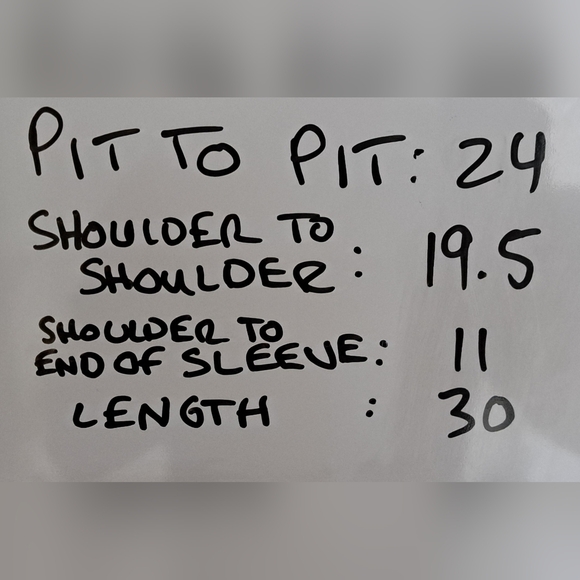 PIT TO PIT: 24
SHOULDER TO
SHOULDER : 19.5
SHOULDER TO
END OF SLEEVE: 11
LENGTH : 30